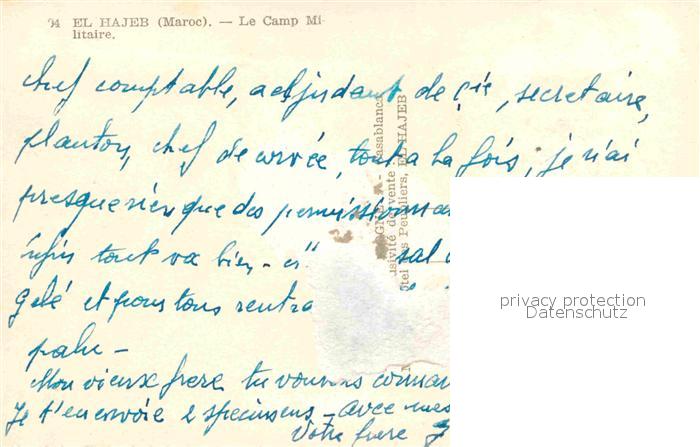 94 EL HAJEB (Maroc). — Le Camp Mi-
litaire.
chef comptable, adjudant de Cie, secretaire,
planton, chef de corvée, tout à la fois, je n'ai
presque rien que des permissionna
tout va bien -
gelé et pour tous rentra
Mon vieux frere tu
Je t'en envoie 2 specimens - avec mes
Votre frere
Casablanca
usivité de vente :
tel des Peupliers, EL HAJEB
privacy protection
Datenschutz